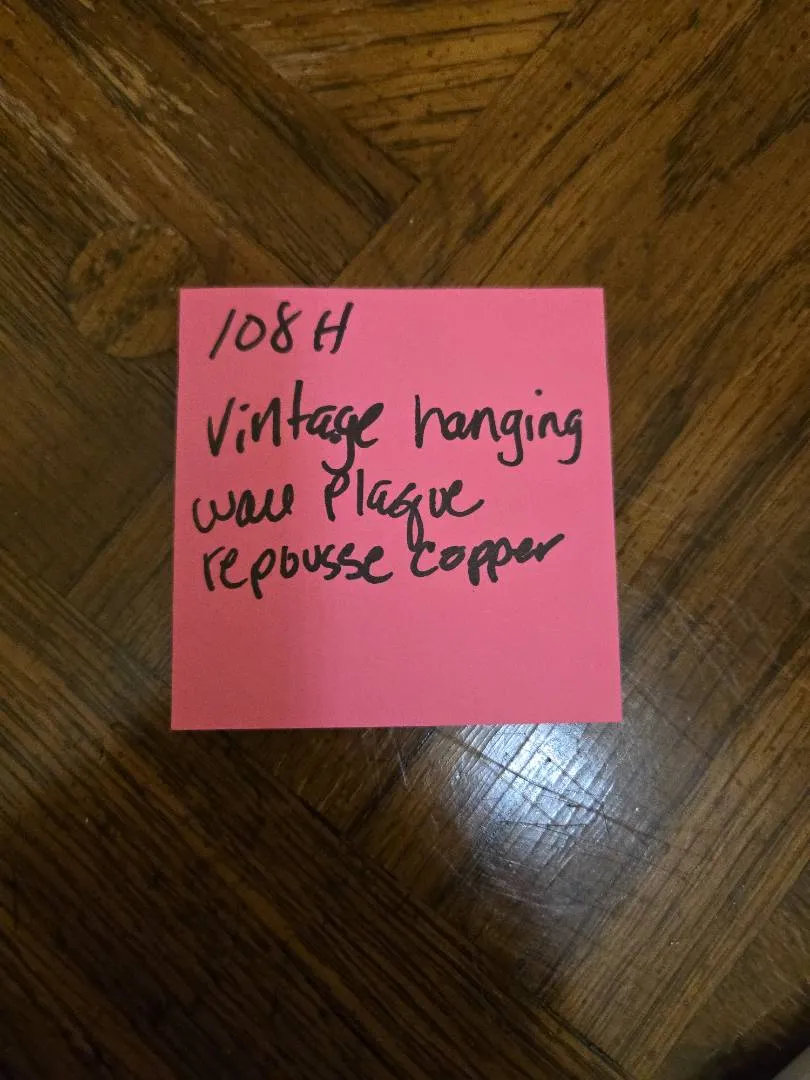 108 H
Vintage hanging
wall Plaque
repousse copper